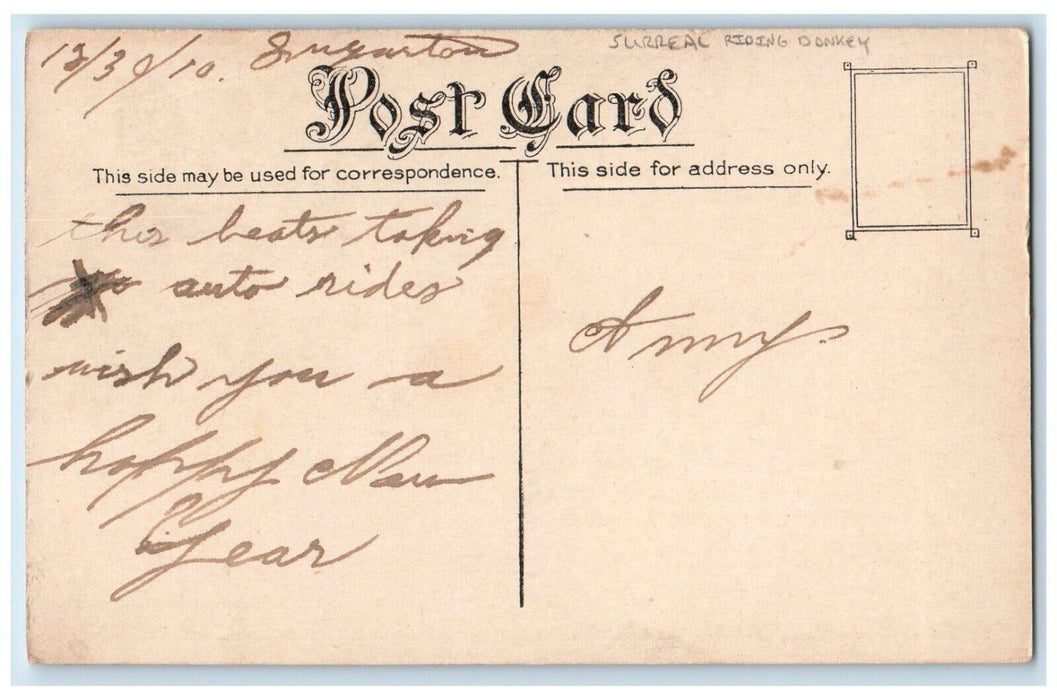 12/30/10. Sugarton
SURREAL RIDING DONKEY
Post Card
This side may be used for correspondence.
This side for address only.
this beats taking
auto rides
wish you a
happy New
Year
Amy.